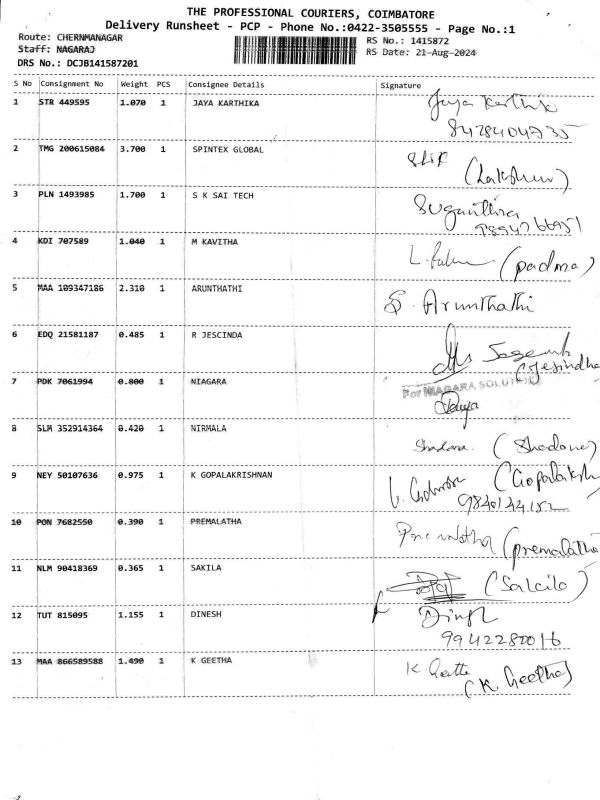 THE PROFESSIONAL COURIERS, COIMBATORE
Delivery Runsheet - PCP - Phone No.:0422-3505555 - Page No.:1
Route: CHERNMANAGAR
Staff: NAGARAJ
DRS No.: DCJB141587201
RS No.: 1415872
RS Date: 21-Aug-2024
S No Consignment No Weight PCS Consignee Details Signature
1 STR 449595 1.070 1 JAYA KARTHIKA Jaya Karthik
8428404735
2 TMG 200615084 3.700 1 SPINTEX GLOBAL
3 PLN 1493985 1.700 1 S K SAI TECH Suganthira
9894766951
4 KDI 707589 1.040 1 M KAVITHA (padma)
5 MAA 109347186 2.310 1 ARUNTHATHI S. Arunthathi
6 EDQ 21581187 0.485 1 R JESCINDA
(Jesindha
7 PDK 7061994 0.800 1 NIAGARA For NIAGARA SOLUTION
8 SLM 352914364 0.420 1 NIRMALA
9 NEY 50107636 0.975 1 K GOPALAKRISHNAN (Gopalaksh
9840144182
10 PON 7682550 0.390 1 PREMALATHA (premalatha
11 NLM 90418369 0.365 1 SAKILA (Salcila)
12 TUT 815095 1.155 1 DINESH
9942280016
13 MAA 866589588 1.490 1 K GEETHA K Geetha
(K. Geetha)